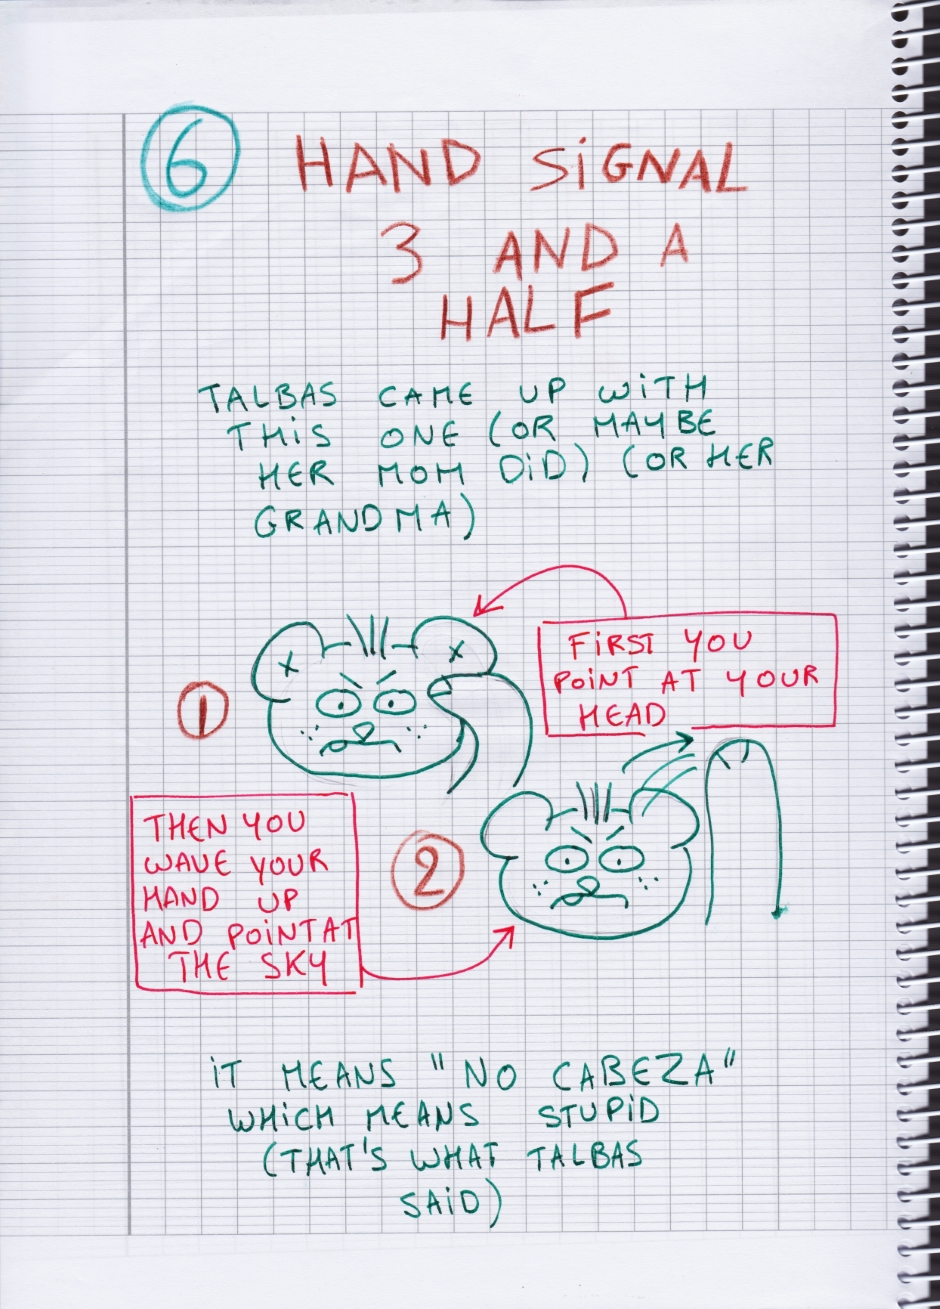 6 HAND SiGNAL
3 AND A
HALF
TALBAS CAME UP WiTH
THiS ONE (OR MAYBE
HER MOM DiD) (OR HER
GRANDMA)
FiRST YOU
POiNT AT YOUR
HEAD
1
THEN YOU
WAVE YOUR
HAND UP
AND POiNT AT
THE SKY
2
iT MEANS "NO CABEZA"
WHiCH MEANS STUPiD
(THAT'S WHAT TALBAS
SAiD)